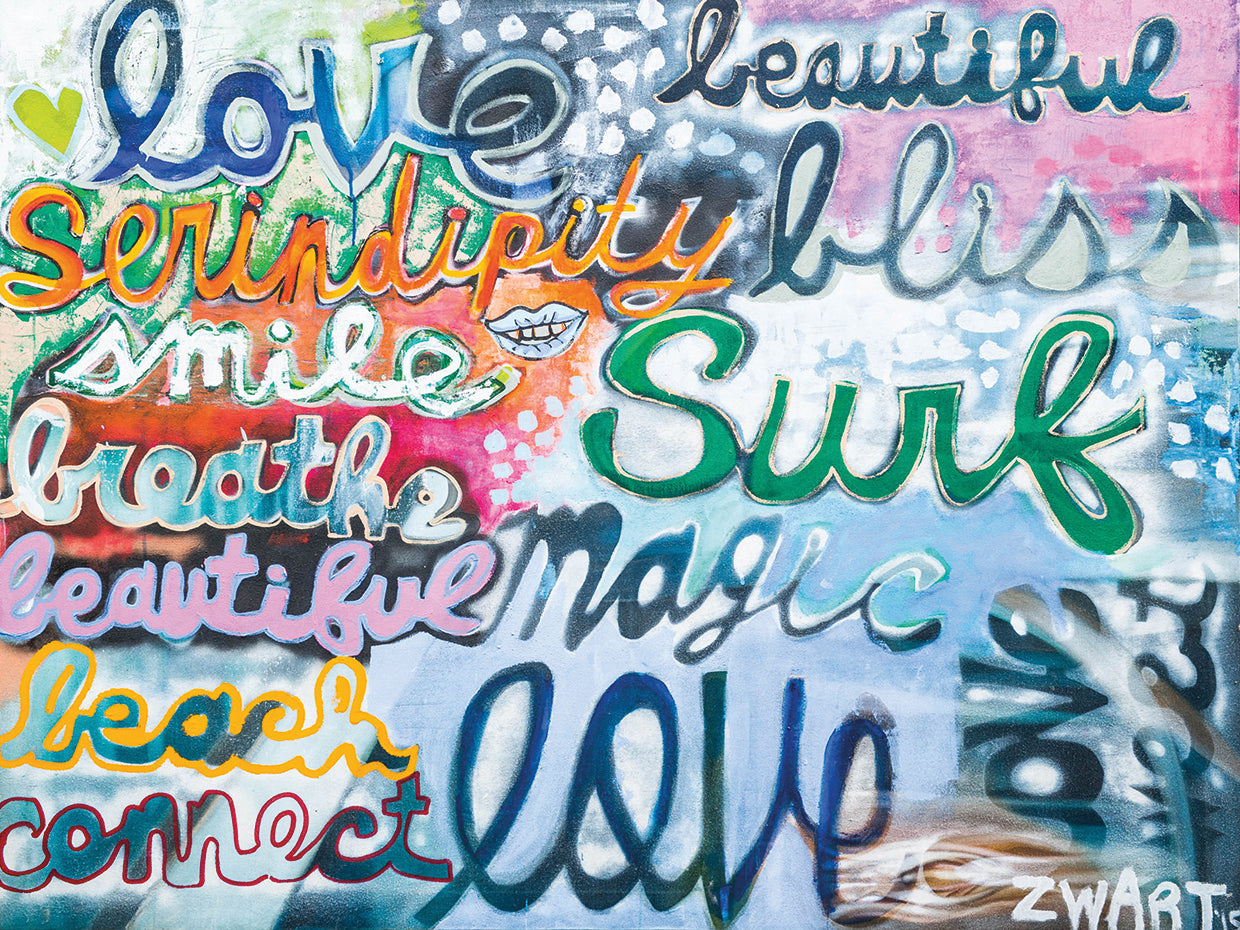 love
beautiful
bliss
Serindipity
smile
Surf
breathe
beautiful
magic
beach
love
love
connect
ZWART '15